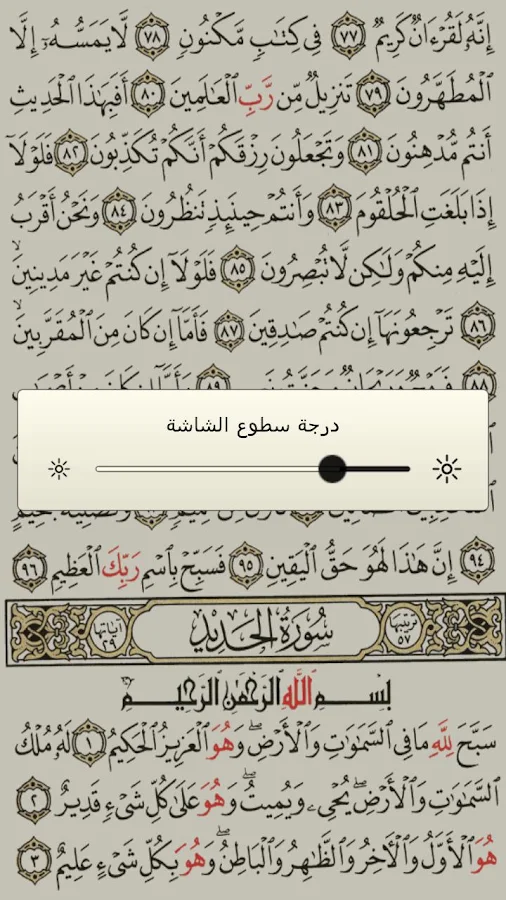 إِنَّهُۥ لَقُرْءَانٌ كَرِيمٌ ٧٧ فِى كِتَٰبٍ مَّكْنُونٍ ٧٨ لَّا يَمَسُّهُۥٓ إِلَّا
ٱلْمُطَهَّرُونَ ٧٩ تَنزِيلٌ مِّن رَّبِّ ٱلْعَٰلَمِينَ ٨٠ أَفَبِهَٰذَا ٱلْحَدِيثِ
أَنتُم مُّدْهِنُونَ ٨١ وَتَجْعَلُونَ رِزْقَكُمْ أَنَّكُمْ تُكَذِّبُونَ ٨٢ فَلَوْلَآ
إِذَا بَلَغَتِ ٱلْحُلْقُومَ ٨٣ وَأَنتُمْ حِينَئِذٍ تَنظُرُونَ ٨٤ وَنَحْنُ أَقْرَبُ
إِلَيْهِ مِنكُمْ وَلَٰكِن لَّا تُبْصِرُونَ ٨٥ فَلَوْلَآ إِن كُنتُمْ غَيْرَ مَدِينِينَ
٨٦ تَرْجِعُونَهَآ إِن كُنتُمْ صَٰدِقِينَ ٨٧ فَأَمَّآ إِن كَانَ مِنَ ٱلْمُقَرَّبِينَ
٨٨
درجة سطوع الشاشة
٩٤ إِنَّ هَٰذَا لَهُوَ حَقُّ ٱلْيَقِينِ ٩٥ فَسَبِّحْ بِٱسْمِ رَبِّكَ ٱلْعَظِيمِ ٩٦
ترتيبها ٥٧ سُورَةُ الحَدِيد آياتها ٢٩
بِسْمِ ٱللَّهِ ٱلرَّحْمَٰنِ ٱلرَّحِيمِ
سَبَّحَ لِلَّهِ مَا فِى ٱلسَّمَٰوَٰتِ وَٱلْأَرْضِ ۖ وَهُوَ ٱلْعَزِيزُ ٱلْحَكِيمُ ١ لَهُۥ مُلْكُ
ٱلسَّمَٰوَٰتِ وَٱلْأَرْضِ ۖ يُحْىِۦ وَيُمِيتُ ۖ وَهُوَ عَلَىٰ كُلِّ شَىْءٍ قَدِيرٌ ٢
هُوَ ٱلْأَوَّلُ وَٱلْءَاخِرُ وَٱلظَّٰهِرُ وَٱلْبَاطِنُ ۖ وَهُوَ بِكُلِّ شَىْءٍ عَلِيمٌ ٣